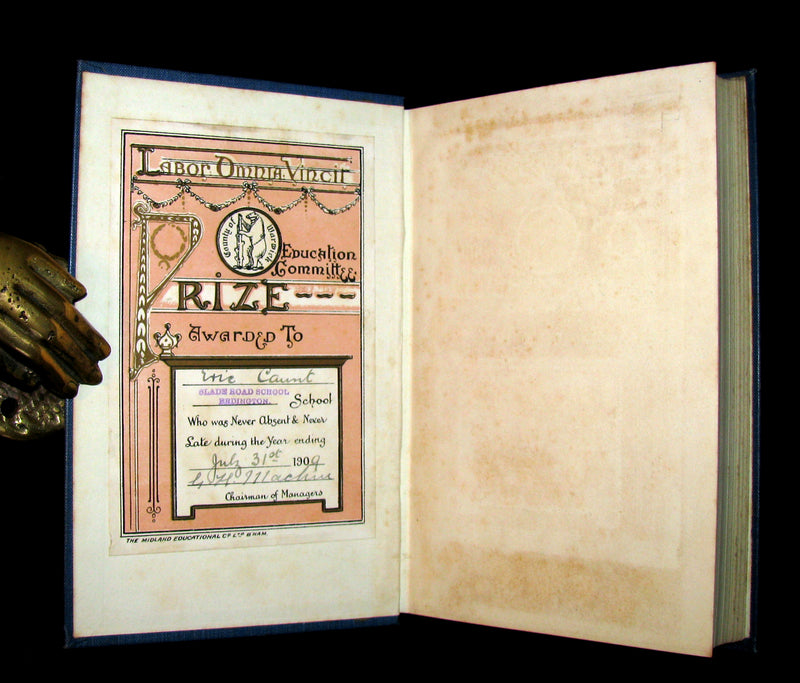 Labor Omnia Vincit
County of Warwick
Education
Committee
PRIZE
Awarded To
Eric Caunt
SLADE ROAD SCHOOL
ERDINGTON.
School
Who was Never Absent & Never
Late during the Year ending
July 31st 1909
Chairman of Managers
THE MIDLAND EDUCATIONAL Co LTD B'HAM.